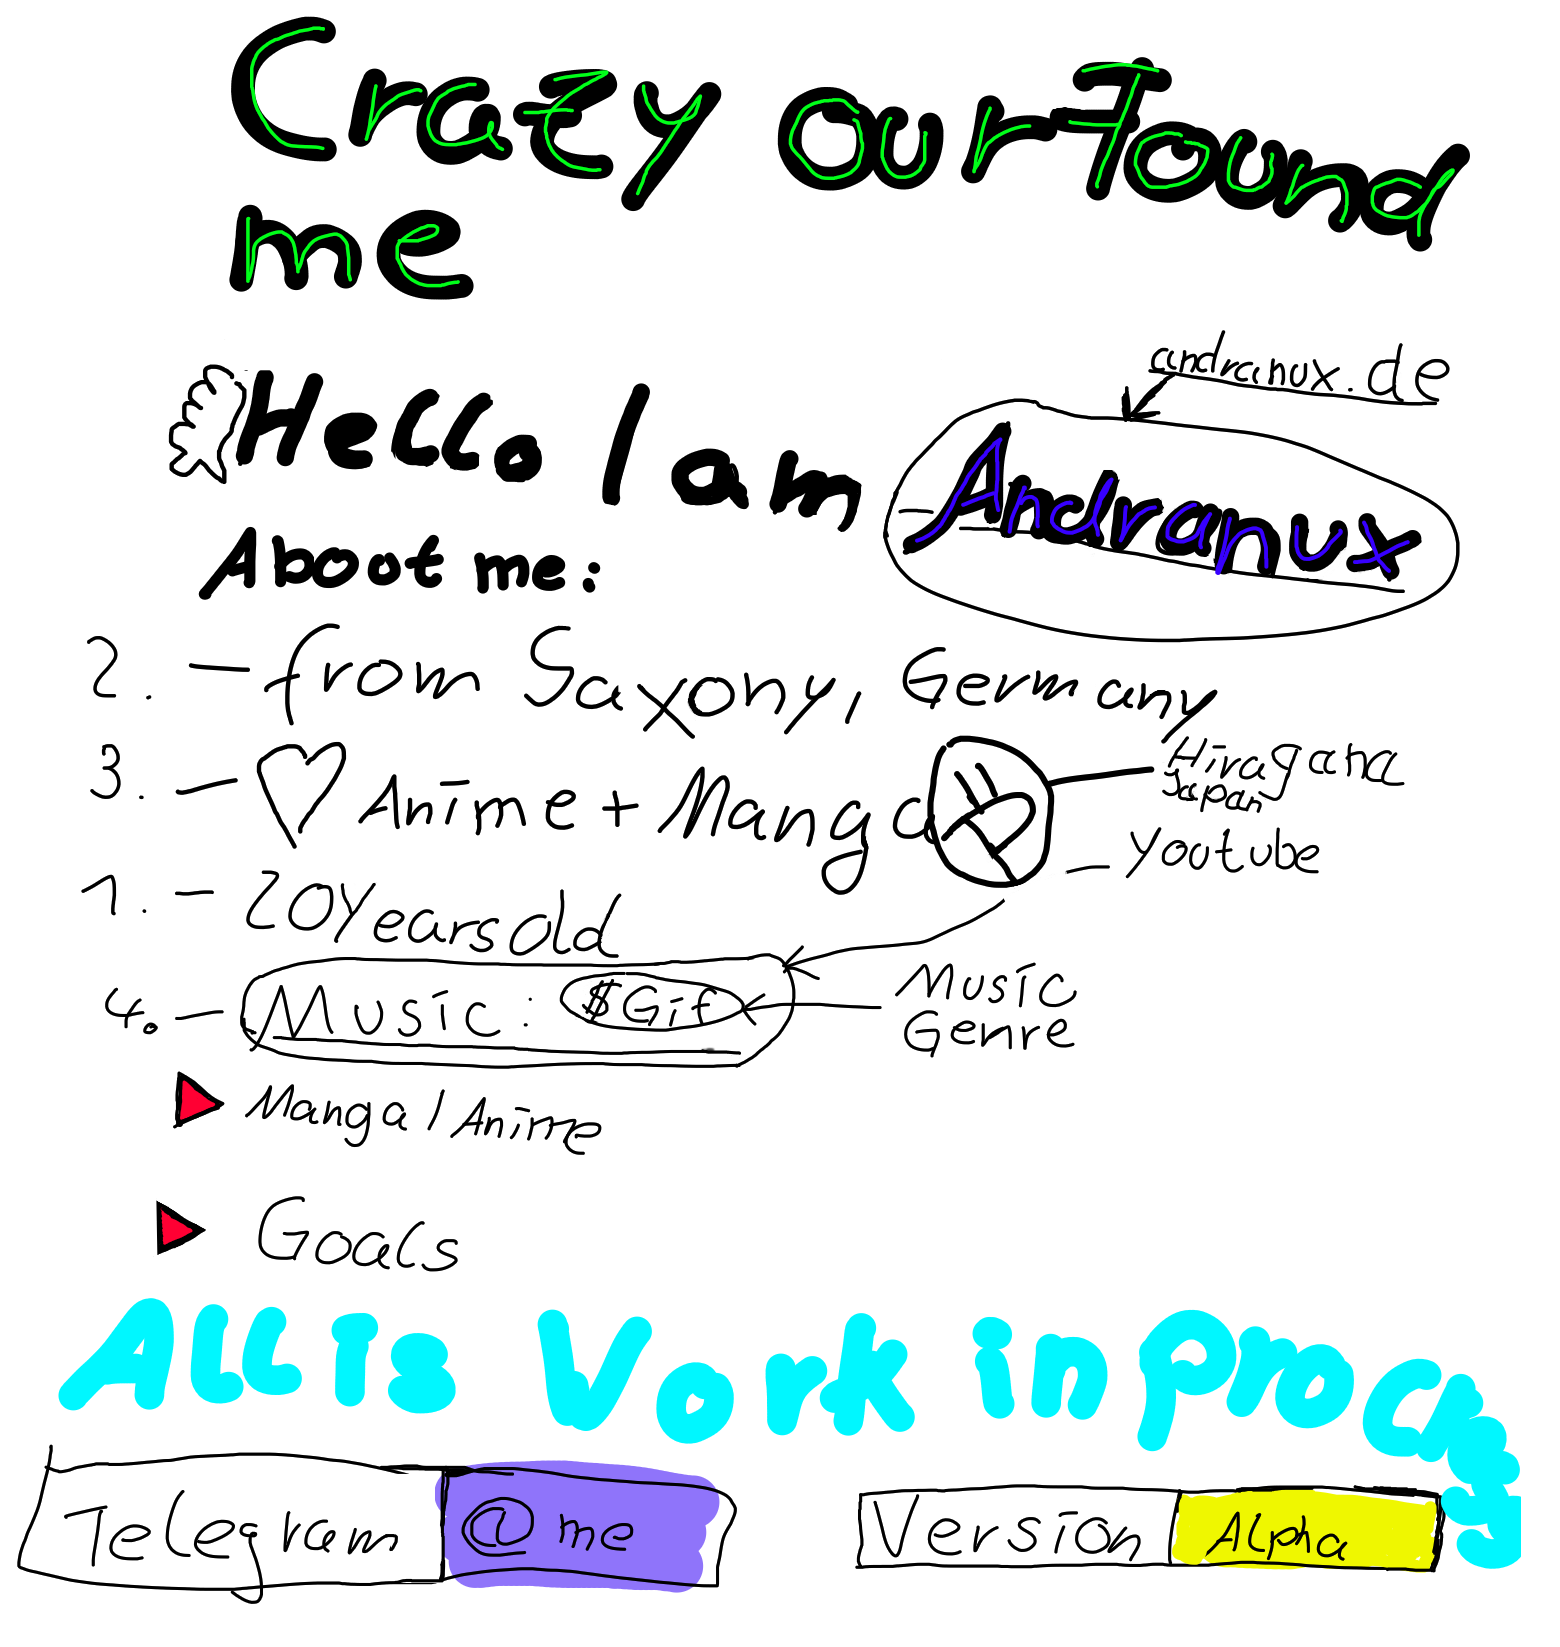 Crazy our found
me
andranux.de
Hello I am Andranux
About me:
2. - from Saxony, Germany
3. - ♡ Anime + Manga
Hiragana
Japan
- Youtube
1. - 20 Years old
4. - Music: $Gif
Music
Genre
Manga / Anime
Goals
All is Vork in process
Telegram @me
Version Alpha